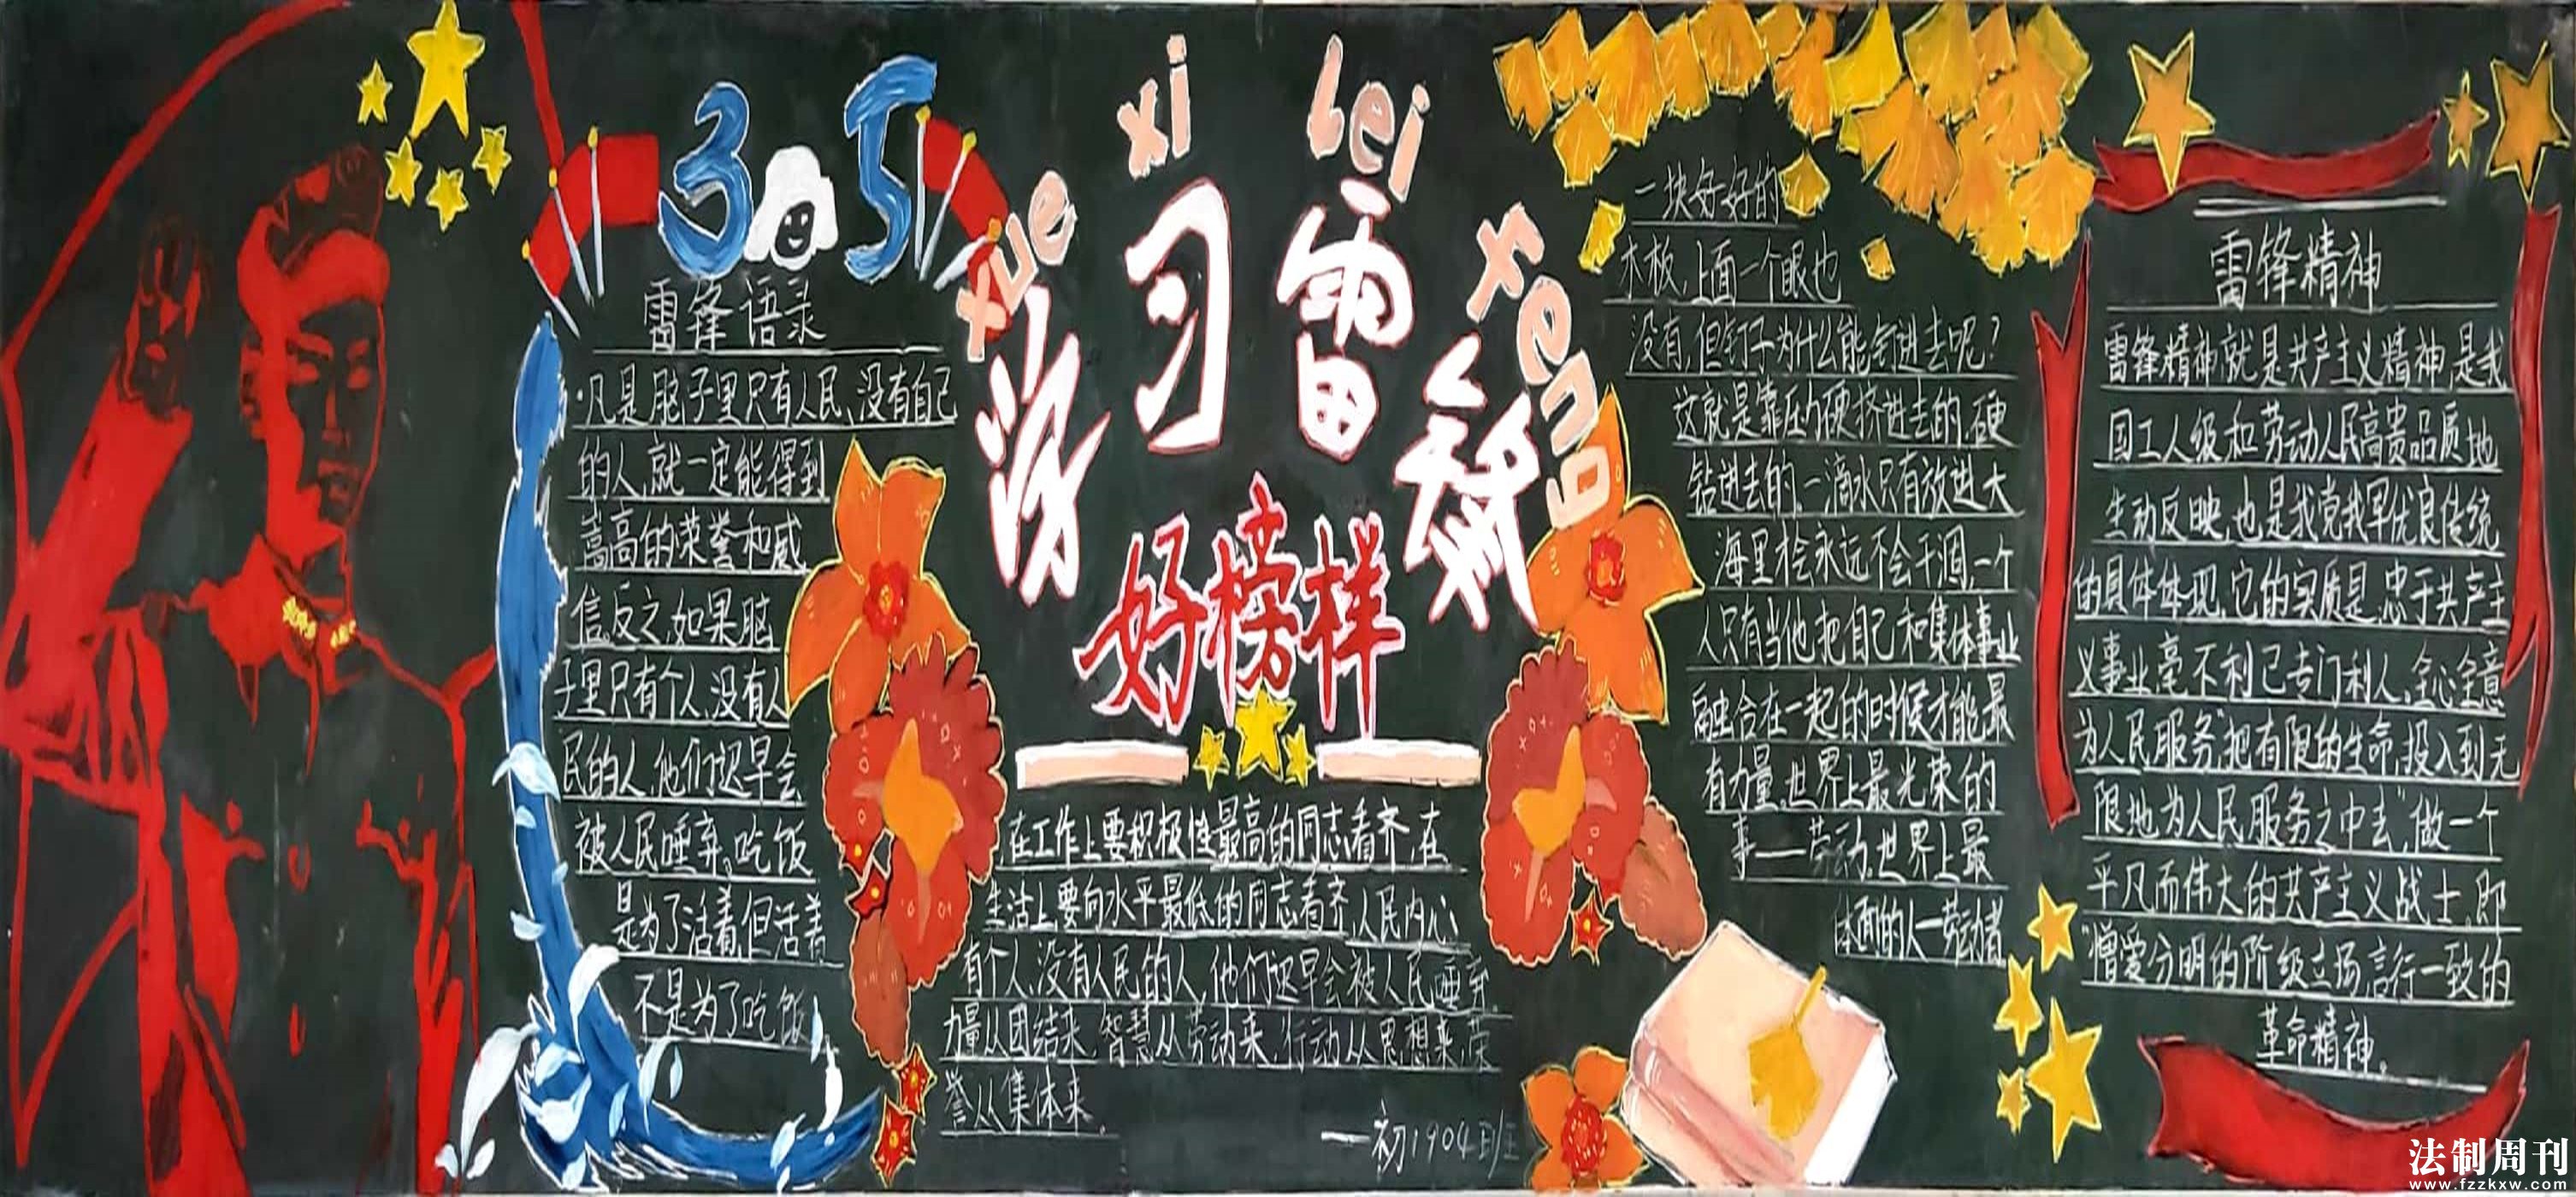 3 5
xue xi lei feng
学习雷锋
好榜样
雷锋语录
·凡是脑子里只有人民、没有自己
的人,就一定能得到
崇高的荣誉和威
信,反之,如果脑
子里只有个人,没有人
民的人,他们迟早会
被人民唾弃。吃饭
是为了活着,但活着
不是为了吃饭!
在工作上要积极性最高的同志看齐,在
生活上要向水平最低的同志看齐,人民内心
有个人,没有人民的人,他们迟早会被人民唾弃.
力量从团结来,智慧从劳动来,行动从思想来,荣
誉从集体来.
—初1904班
一块好好的
木板,上面一个眼也
没有,但钉子为什么能钉进去呢?
这就是靠压力硬挤进去的,硬
钻进去的。一滴水只有放进大
海里才会永远不会干涸,一个
人只有当他把自己和集体事业
融合在一起的时候才能最
有力量,世界上最光荣的
事——劳动,世界上最
体面的人—劳动者
雷锋精神
雷锋精神,就是共产主义精神,是我
国工人级和劳动人民高贵品质地
生动反映,也是我党我军优良传统
的具体体现,它的实质是,忠于共产主
义事业,毫不利己专门利人,全心全意
为人民服务,"把有限的生命,投入到无
限地为人民服务之中去",做一个
平凡而伟大的共产主义战士,即
"憎爱分明的阶级立场,言行一致的
革命精神。
法制周刊
www.fzzkxw.com